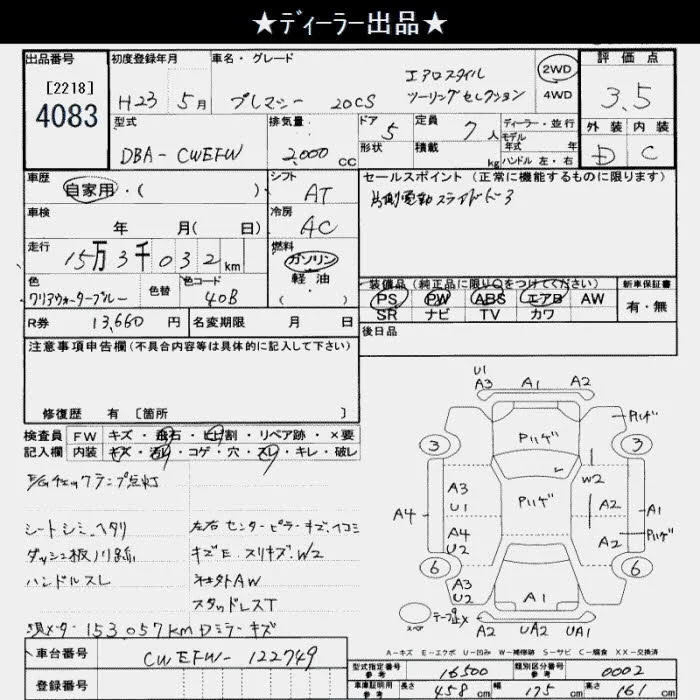 ★ディーラー出品★
出品番号
[2218]
4083
初度登録年月
H23 5月
車名・グレード
プレマシー 20CS
エアロスタイル
ツーリングセレクション
2WD
4WD
評価点
3.5
外装 内装
D C
型式
DBA-CWEFW
排気量
2,000 cc
ドア
5
形状
定員
7人
積載
kg
ディーラー・並行
モデル
年式 年
ハンドル 左・右
車歴
自家用・( )
シフト
AT
車検
年 月( 日)
冷房
AC
走行
15万3千032km
燃料
ガソリン
軽油
( )
色
クリアウォーターブルー
色替
色コード
40B
R券 13,660 円
名変期限 月 日
セールスポイント(正常に機能するものに限ります)
片側電動スライドドア
装備品(純正品に限り○をつけてください)
PS PW ABS エアB AW
SR ナビ TV カワ
新車保証書
有・無
後日品
注意事項申告欄(不具合内容等は具体的に記入して下さい)
修復歴 有 [箇所 ]
検査員
記入欄
FW キズ・飛石・ヒビ割・リペア跡・×要
内装 キズ・汚れ・コゲ・穴・スレ・キレ・破レ
E/Gチェックランプ点灯
シートシミ、ヘタリ
ハンドルスレ
左右センターピラーキズ、ヘコミ
キズE、スリキズ、W2
社外AW
スタッドレスT
現メーター153,057km Dミラーキズ
U1
A3 A1 A2
Pハゲ
Pハゲ
3
3
W2
A3
U1
Pハゲ
A2
A1
A4
A4
U2
Pハゲ
A2
6
6
A3
U2
A1
スペア
A2 UA2 UA1
A-キズ E-エクボ U-凹み W-補修跡 S-サビ C-腐食 XX-交換済
車台番号
CWEFW-122749
登録番号
型式指定番号
参考
16500
類別区分番号
参考
0002
車庫証明用
参考
長さ 458cm
幅 175cm
高さ 161cm